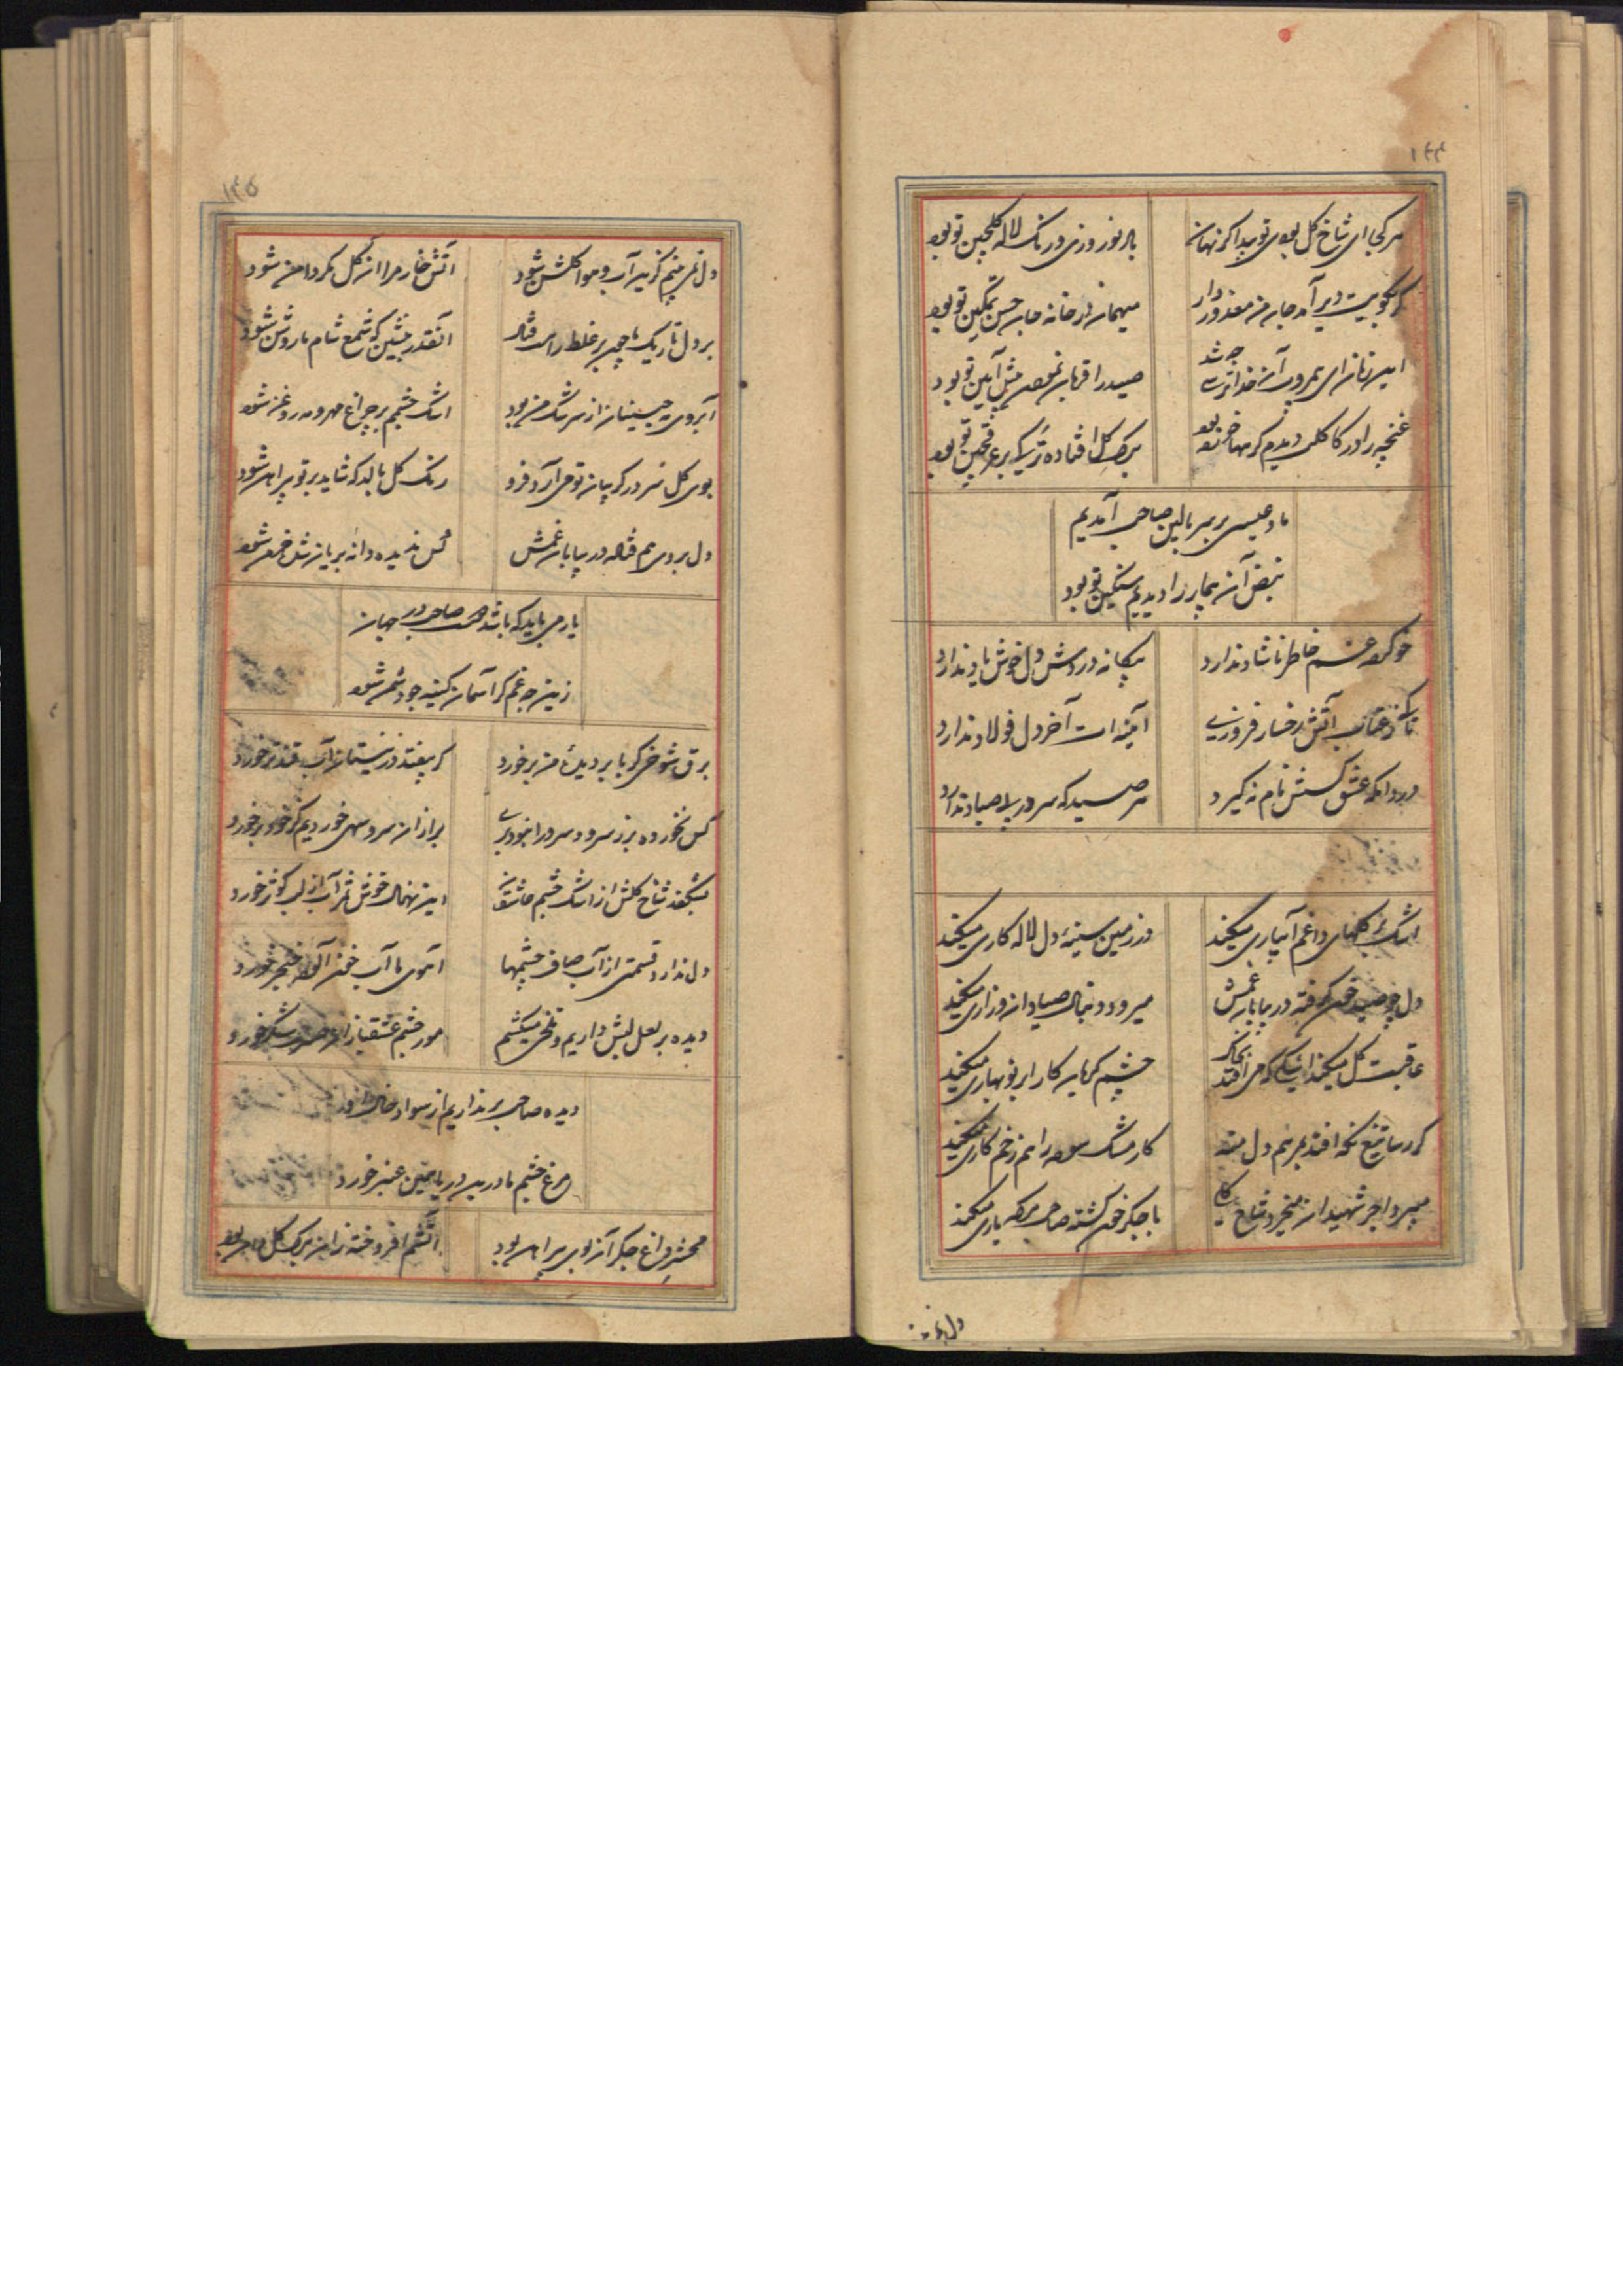 ۱۴۴
هر کجا ای شاخ گل بودی تو پیدا کر نهان
باد نوروزی و رنک لاله کلچین تو بود
کر بکویت دیر آمد جان من معذور دار
میهمان در خانه جان حسن تمکین تو بود
این زمان ای بیمروت آن خداترسی چه شد
صید را قربان نمودن پیش آیین تو بود
غنچه را در کاکلت دیدم
برک کل افتاده
ما و عیسی بر سر بالین صاحب آمدیم
نبض آن بیمار را دیدیم سنکین تو بود
خو کرده غم خاطر ناشاد ندارد
پیکانه دردش دل خوش یاد ندارد
تا کی ز عتاب آتش رخسار فروزی
آیینه ات آخر دل فولاد ندارد
در دوامکه عشق کسش نام نه گیرد
هر صید که سر در پی صیاد ندارد
اشک کلهای داغم آبیاری میکند
در زمین سینهٔ دل لاله کاری میکند
دل چو صید خون کرفته در بیابان غمش
میرود دنبال صیادان و زاری میکند
عاقبت کل میکند اشکی که می افتد بخاک
چشم کریان کار ابر نوبهاری میکند
کر رسا تیغ نکه افتد بمرهم دل منه
کار مشک سوده را هم زخم کاری میکند
میبرد اجر شهیدان
با جکر خون کشته صاحب هر که یاری میکند
۱۴۵
دل نمی بینم کزین آب و هوا کلشن شود
آتش خار مرا از کل مکر دامن شود
بر دل تاریک ما چون پرغلط راهت فتاد
آنقدر بنشین که شمع شام ما روشن شود
آبروی مه جبینان از سرشک من بود
اشک چشمم بر چراغ مهر و مه روغن شود
بوی کل سر در کریبان تو می آرد فرو
رنک کل بالد که شاید بر تو پیراهن شود
دل بروی هم فتاده در بیابان غمش
کس ندیده دانه بریان شده خرمن شود
یار می باید که باشد دوست صاحب در جهان
زین چه غم کر آسمان کینه جو دشمن شود
برق شوخی کو بابر دیدهٔ من برخورد
کر بیفتد در نیستان آب قند تر خورد
کس نخورده بر ز سرو و سرو را نبود بری
بر از آن سرو سهی خوردیم کز خود بر خورد
بشکفد شاخ کلش از اشک چشم عاشقان
این نهال خوش ثمر آب از لب کوثر خورد
دل ندارد قسمتی از آب صاف چشمها
آهوی ما آب خون آلود خنجر خورد
دیده بر لعل لبش داریم و تلخی میکشیم
مور چشم عشقبازان شکر خورد
دیده صاحب بر نداریم از سواد خال او
مرغ چشم ما در این دریا همین عنبر خورد
محشر داغ جکر آن بوی پیراهن بود
آتشم افروخته زان برک کل دامن بود